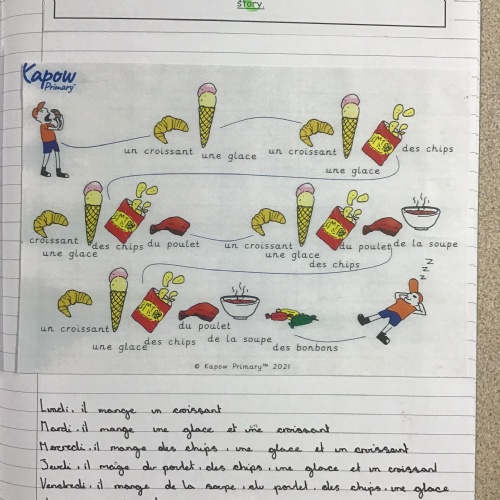 story.
Kapow
Primary™
un croissant
une glace
un croissant
une glace
des chips
croissant
une glace
des chips
du poulet
un croissant
une glace
des chips
du poulet
de la soupe
z
z
z
un croissant
une glace
des chips
du poulet
de la soupe
des bonbons
© Kapow Primary™ 2021
Lundi, il mange un croissant
Mardi, il mange une glace et une croissant
Mercredi, il mange des chips, une glace et un croissant
Jeudi, il maige du poulet, des chips, une glace et un croissant
Vendredi, il mange de la soupe, du poulet, des chips, une glace